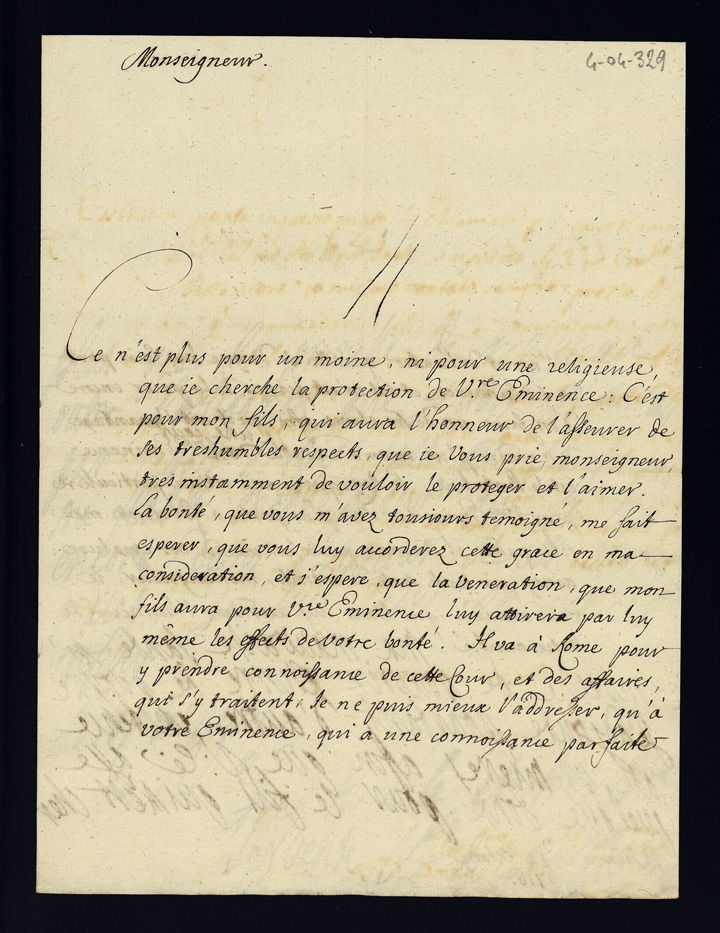 Monseigneur.
4-04-329
Ce n'est plus pour un moine, ni pour une religieuse,
que ie cherche la protection de V.re Eminence: C'est
pour mon fils, qui aura l'honneur de l'asseurer de
ses treshumbles respects, que ie vous prie, monseigneur,
tres instamment de vouloir le proteger et l'aimer.
La bonté, que vous m'avez tousiours temoigné, me fait
esperer, que vous luy accorderez cette grace en ma
consideration, et i'espere, que la veneration, que mon
fils aura pour V.re Eminence luy attirera par luy
même les effects de votre bonté. Il va à Rome pour
y prendre connoissance de cette Cour, et des affaires,
qui s'y traitent; Ie ne puis mieux l'addresser, qu'à
votre Eminence, qui a une connoissance parfaite